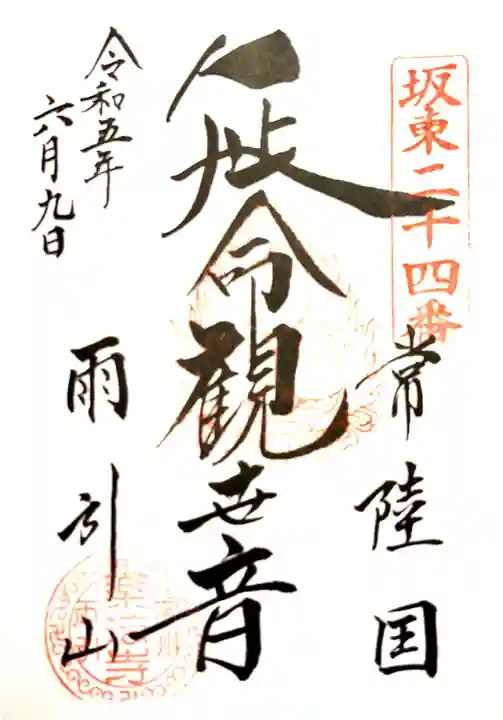 坂東二十四番
常陸国
延命観世音
雨引山
令和五年
六月九日